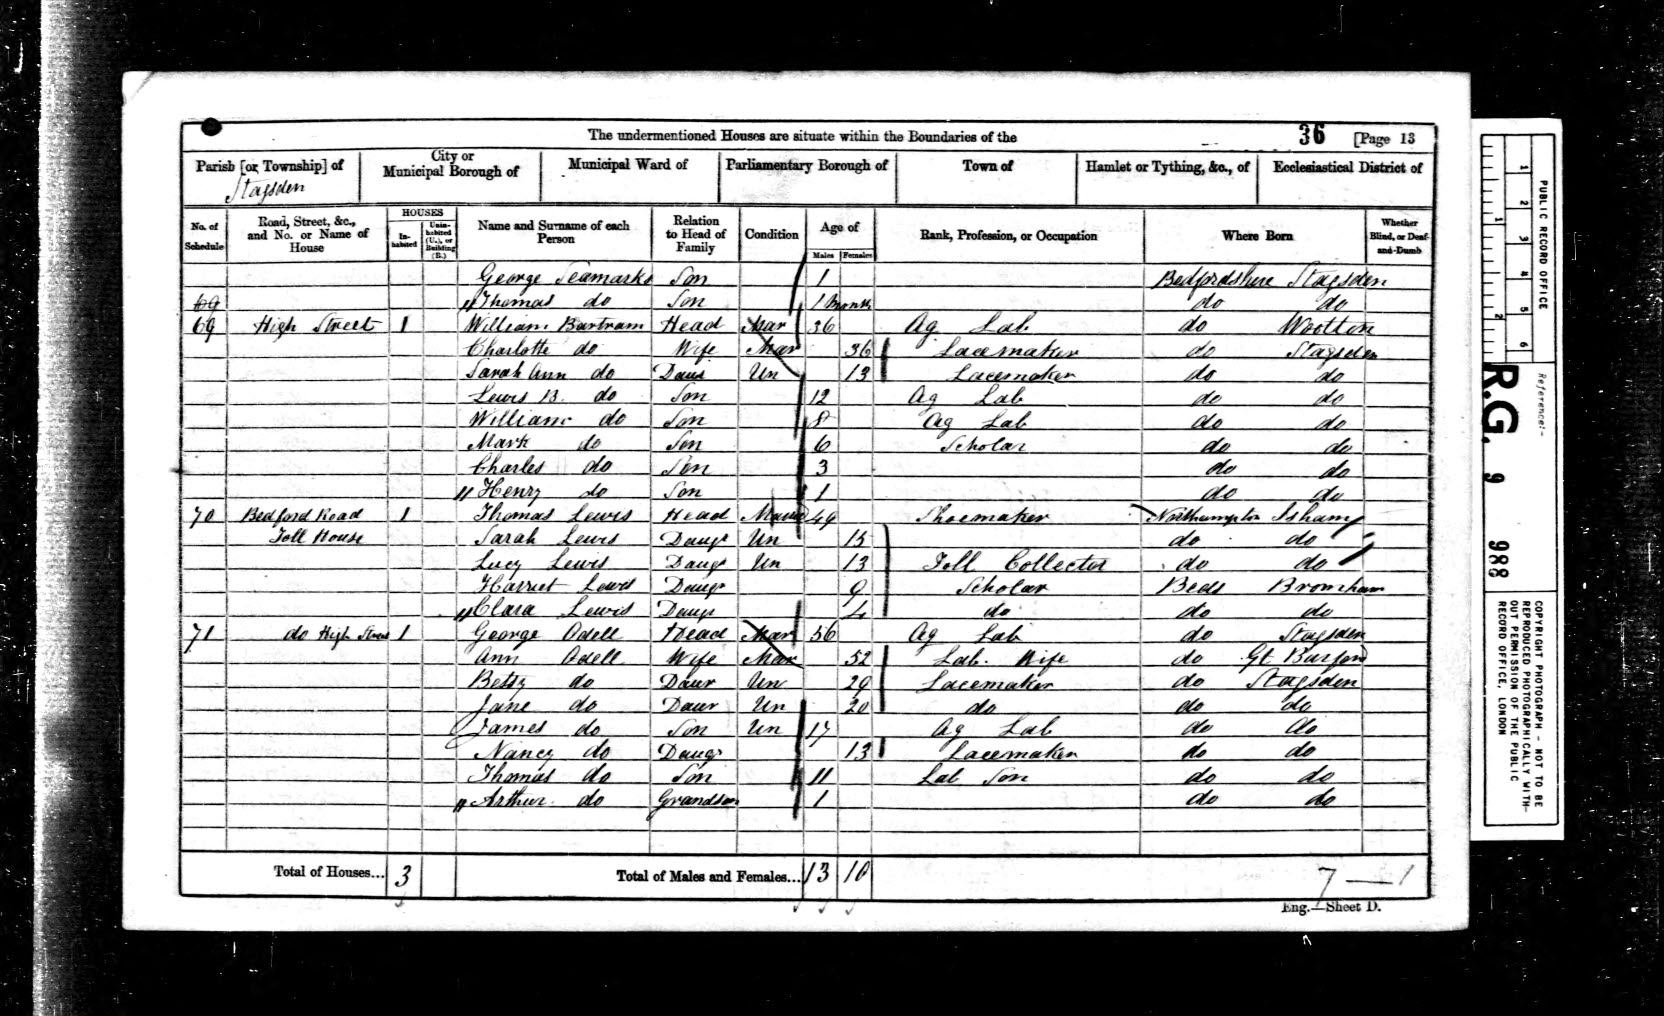 The undermentioned Houses are situate within the Boundaries of the
36 [Page 13
Parish [or Township] of
Stagsden
City or Municipal Borough of
Municipal Ward of
Parliamentary Borough of
Town of
Hamlet or Tything, &c., of
Ecclesiastical District of
No. of Schedule
Road, Street, &c., and No. or Name of House
HOUSES
In-habited
Unin-habited (U.), or Building (B.)
Name and Surname of each Person
Relation to Head of Family
Condition
Age of
Males Females
Rank, Profession, or Occupation
Where Born
Whether Blind, or Deaf-and-Dumb
George Seamarks Son 1 Bedfordshire Stagsden
69 Thomas do Son 1 Month do do
69 High Street 1 William Bartram Head Mar 36 Ag Lab do Wootton
Charlotte do Wife Mar 36 Lacemaker do Stagsden
Sarah Ann do Daur Un 13 Lacemaker do do
Lewis B. do Son 12 Ag Lab do do
William do Son 8 Ag Lab do do
Mark do Son 6 Scholar do do
Charles do Son 3 do do
Henry do Son 1 do do
70 Bedford Road 1 Thomas Lewis Head 49 Shoemaker Northampton Isham
Toll House Sarah Lewis Daugr Un 15 do do
Lucy Lewis Daugr Un 13 Toll Collector do do
Harriet Lewis Daugr 9 Scholar Beds Bromham
Clara Lewis Daugr 4 do do do
71 do High Street 1 George Odell Head Mar 56 Ag Lab do Stagsden
Ann Odell Wife Mar 52 Lab. Wife do Gt Barford
Betsy do Daur Un 29 Lacemaker do Stagsden
Jane do Daur Un 20 do do do
James do Son Un 17 Ag Lab do do
Nancy do Daugr 13 Lacemaker do do
Thomas do Son 11 Lab Son do do
Arthur do Grandson 1 do do
Total of Houses... 3
Total of Males and Females... 13 10
7 — 1
Eng.—Sheet D.
PUBLIC RECORD OFFICE
1 2 3 4 5 6
1 2
Reference:-
R.G. 9 988
COPYRIGHT PHOTOGRAPH - NOT TO BE
REPRODUCED PHOTOGRAPHICALLY WITH-
OUT PERMISSION OF THE PUBLIC
RECORD OFFICE, LONDON